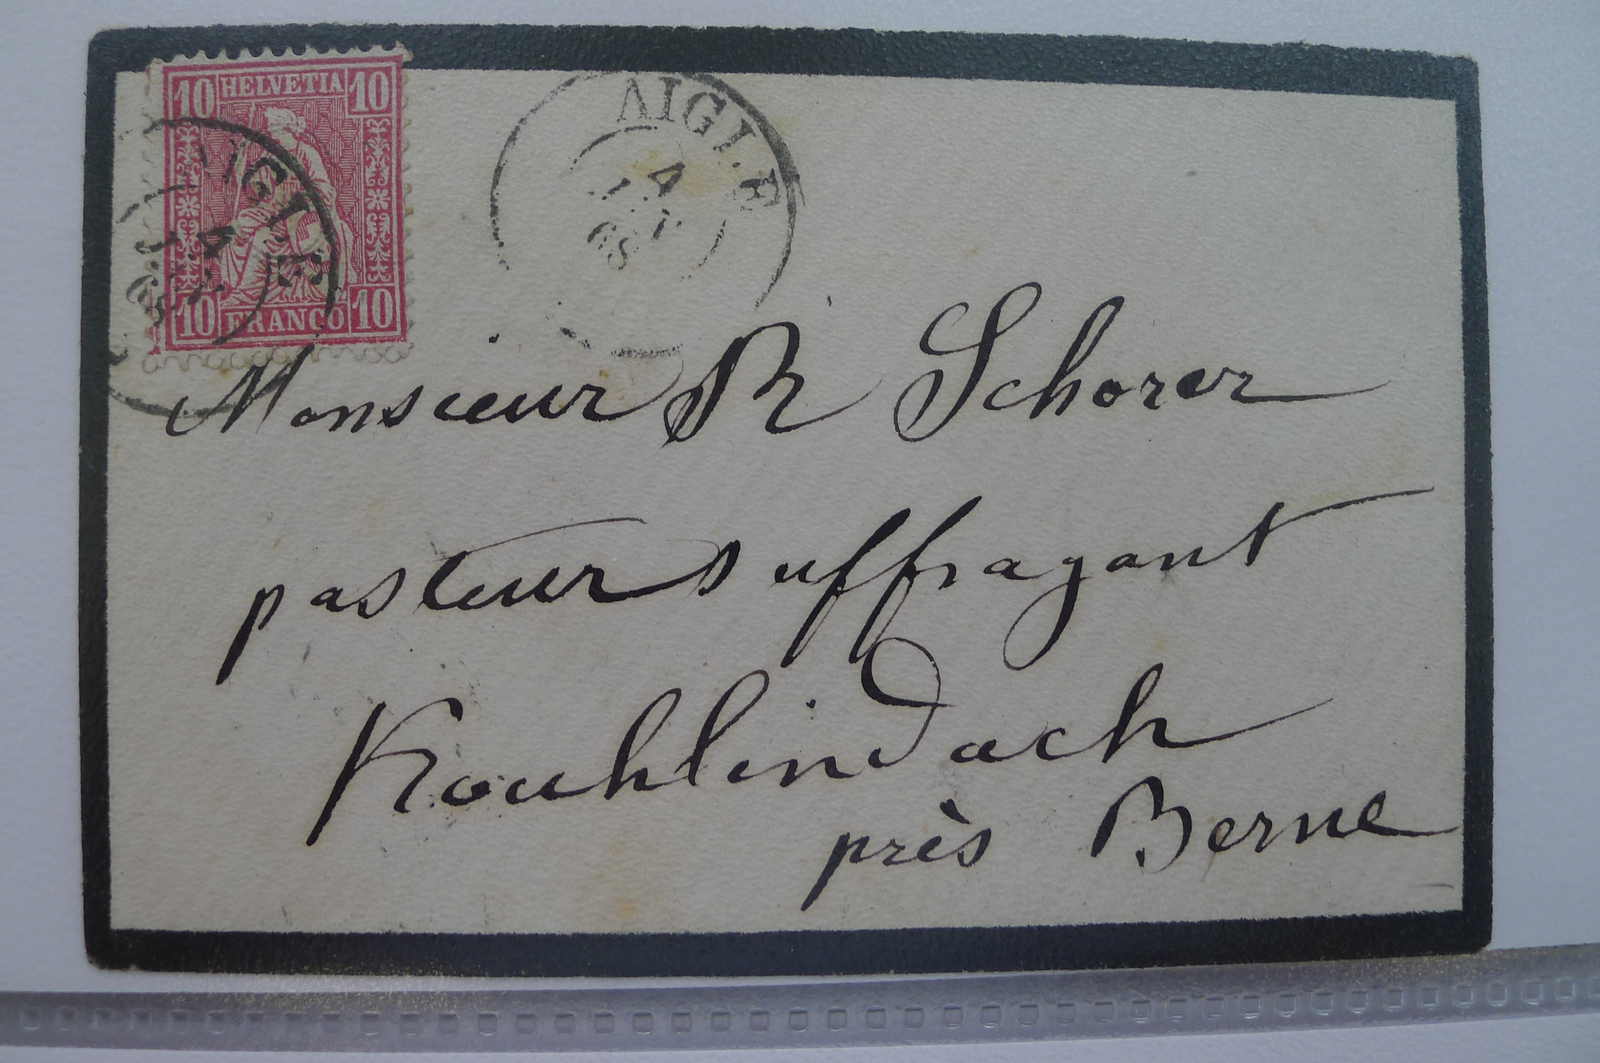 10 HELVETIA 10
10 FRANCO 10
AIGLE
4
68
AIGLE
4
68
Monsieur R Schorer
pasteur suffragant
Kouhlindach
près Berne